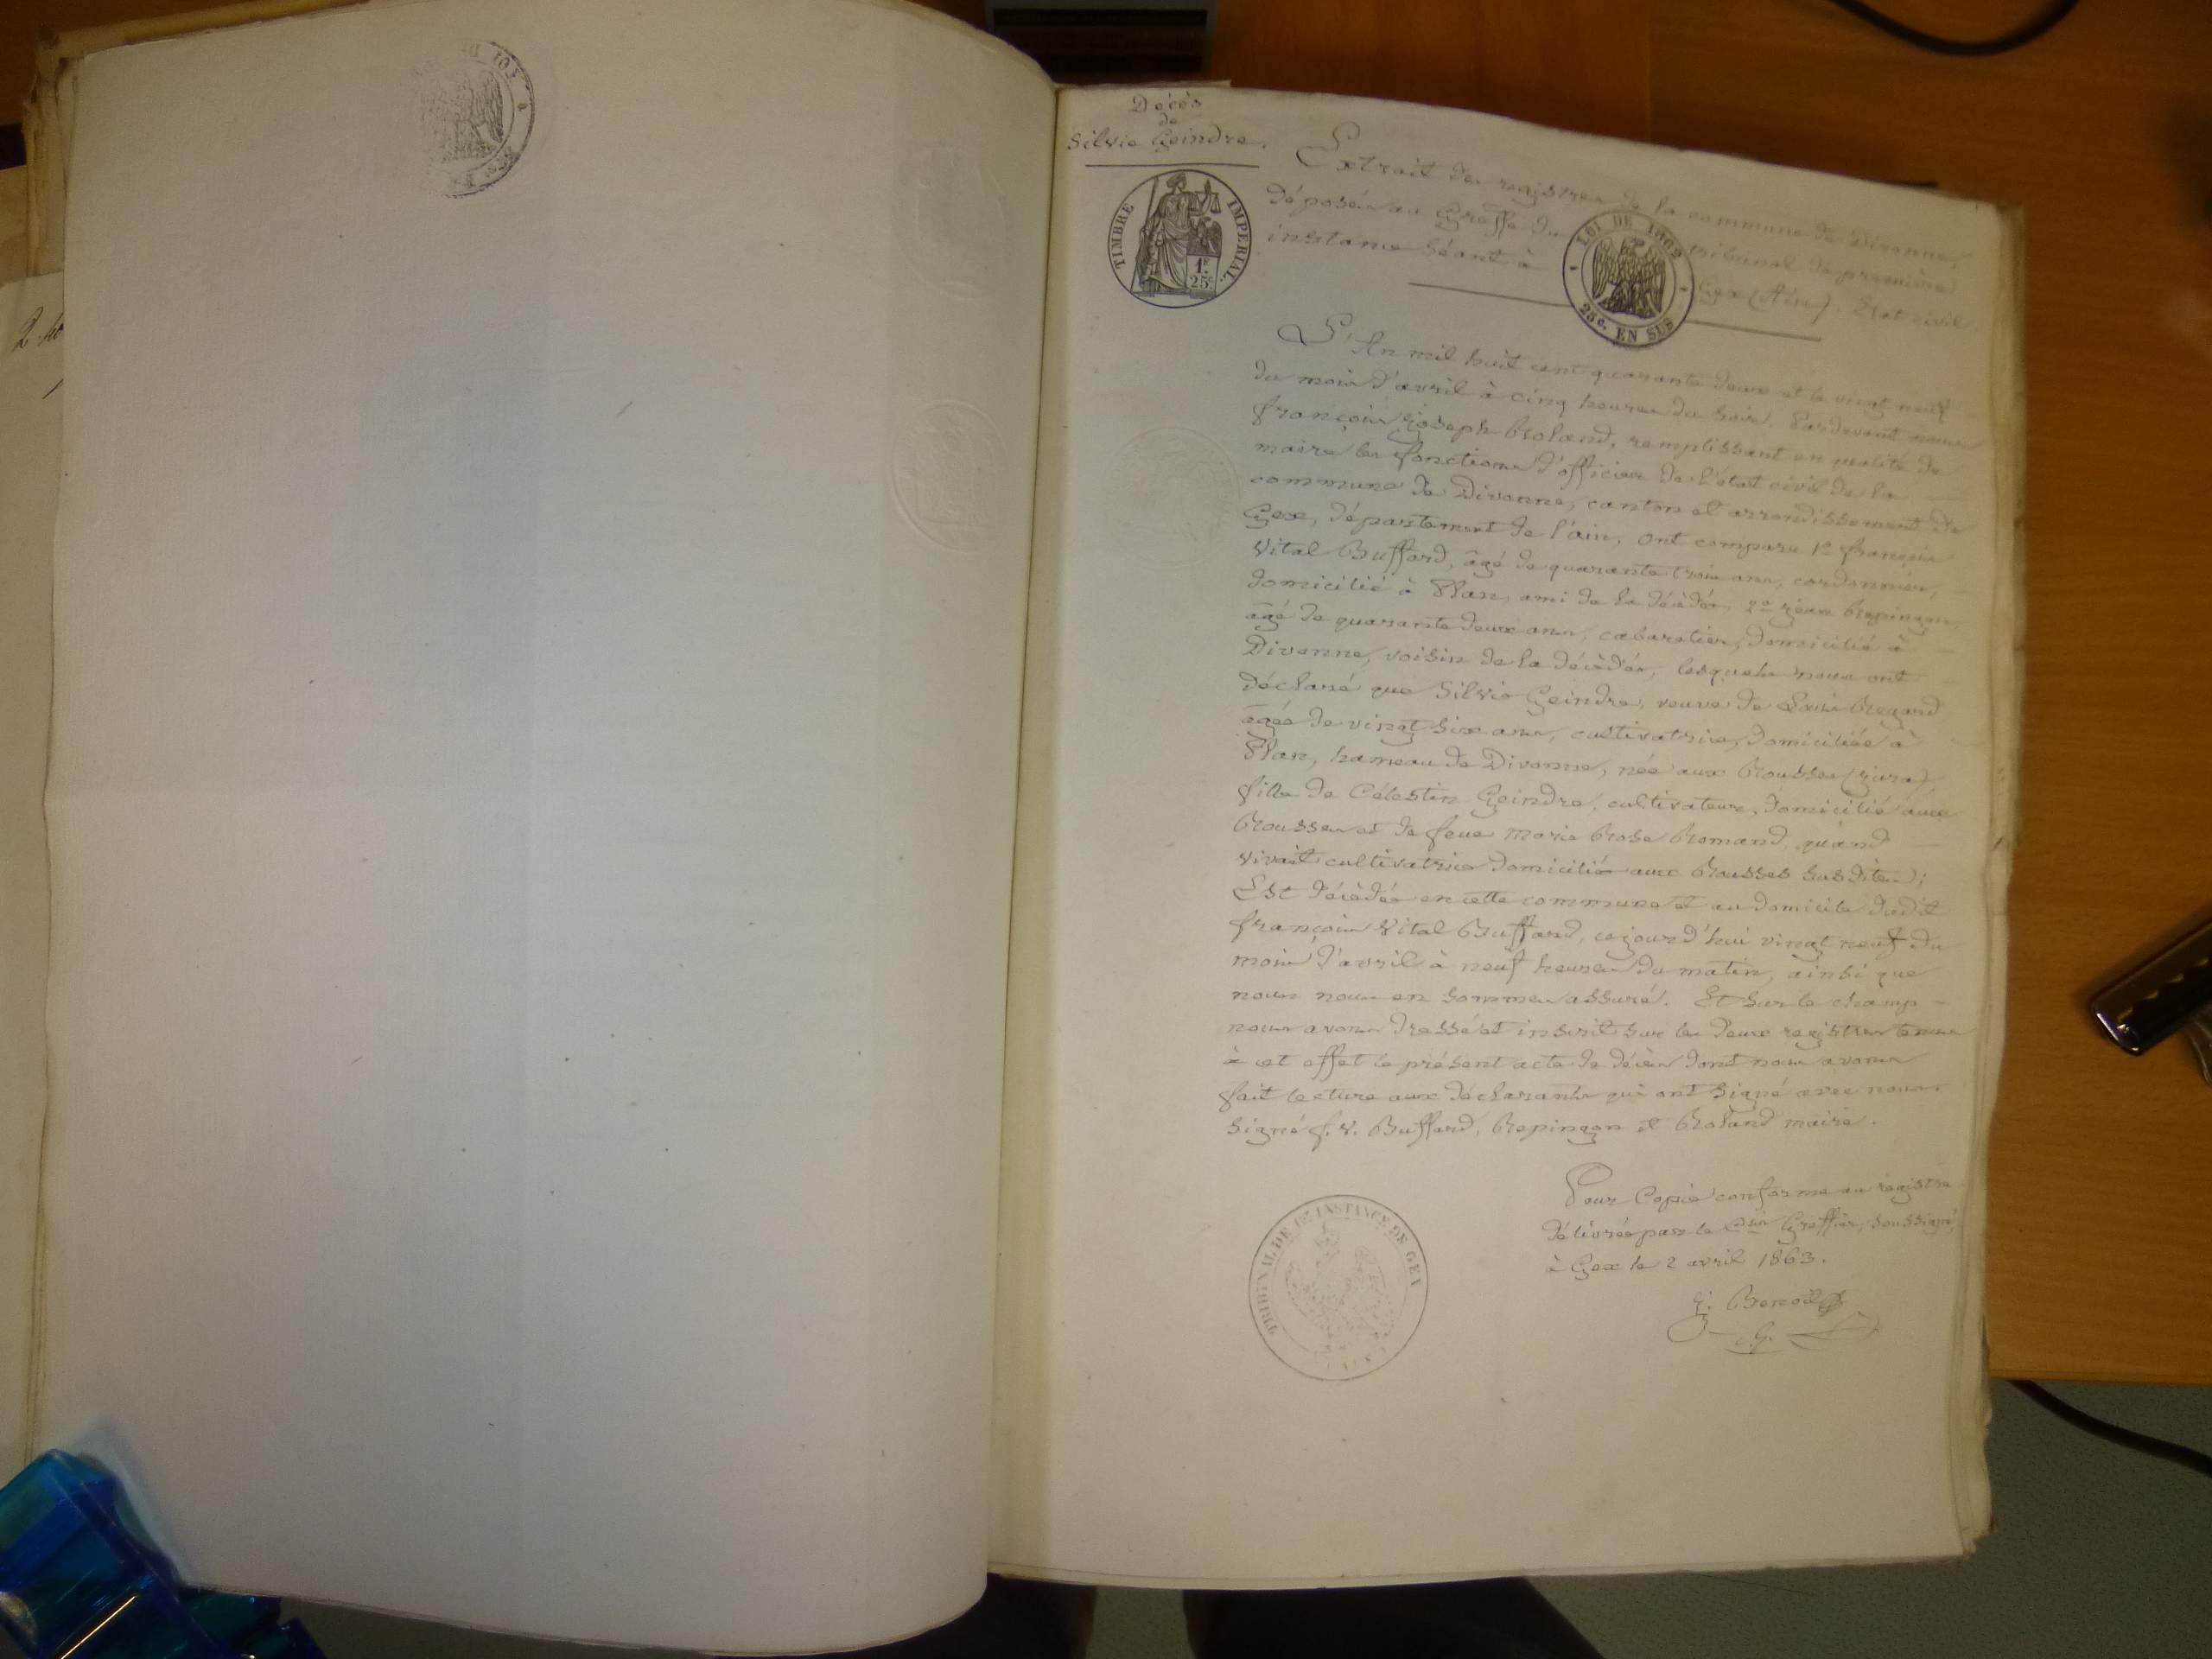 Décès
de
Silvie Geindre.
TIMBRE IMPERIAL
1F.
25c
LOI DE 1862
25c. EN SUS
Extrait des registres de la commune de Divonne,
déposés au Greffe du tribunal de première
instance séant à Gex (Ain). Etat civil
L'An mil huit cent quarante deux et le vingt neuf
du mois d'avril à cinq heures du soir. Pardevant nous
françois Joseph Roland, remplissant en qualité de
maire les fonctions d'officier de l'état civil de la
commune de Divonne, canton et arrondissement de
Gex, département de l'ain, ont comparu 1o françois
Vital Buffard, âgé de quarante trois ans, cordonnier,
domicilié à Plan, ami de la décédée, 2o Jean Repingon,
âgé de quarante deux ans, cabaretier, domicilié à
Divonne, voisin de la décèdée, lesquels nous ont
déclaré que Silvie Geindre, veuve de Louis Regard
âgée de vingt six ans, cultivatrice, domiciliée à
Plan, hameau de Divonne, née aux Rousses (Jura)
fille de Célestin Geindre, cultivateur, domicilié aux
Rousses et de feue Marie Rose Romand, quand
vivait cultivatrice domiciliée aux Rousses susdites;
Est décèdée en cette commune et au domicile dudit
françois Vital Buffard, cejourd'hui vingt neuf du
mois d'avril à neuf heures du matin, ainsi que
nous nous en sommes assuré. Et sur le champ
nous avons dressé et inscrit sur les deux registres tenus
à cet effet le présent acte de décès dont nous avons
fait lecture aux déclarants qui ont signé avec nous.
Signé f. V. Buffard, Repingon et Roland maire.
Pour Copie conforme au registre
délivrée par le Greffier, soussigné,
à Gex le 2 avril 1863.
J. Benoit
TRIBUNAL DE 1re INSTANCE DE GEX